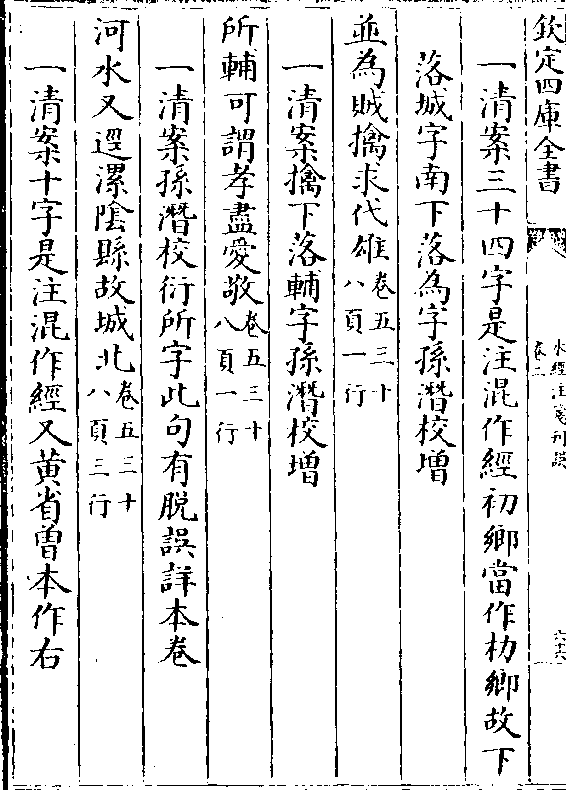 欽定四庫全書
水經注箋刊誤
卷二
六六
一清案三十四字是注混作經初鄉當作朸鄉故下
落城字南下落為字孫潛校增
並為賊擒求代雄卷五三十八頁一行
一清案擒下落輔字孫潛校增
所輔可謂孝盡愛敬卷五三十八頁一行
一清案孫潛校衍所字此句有脫誤詳本卷
河水又逕漯隂縣故城北卷五三十八頁三行
一清案十字是注混作經又黄省曾本作右